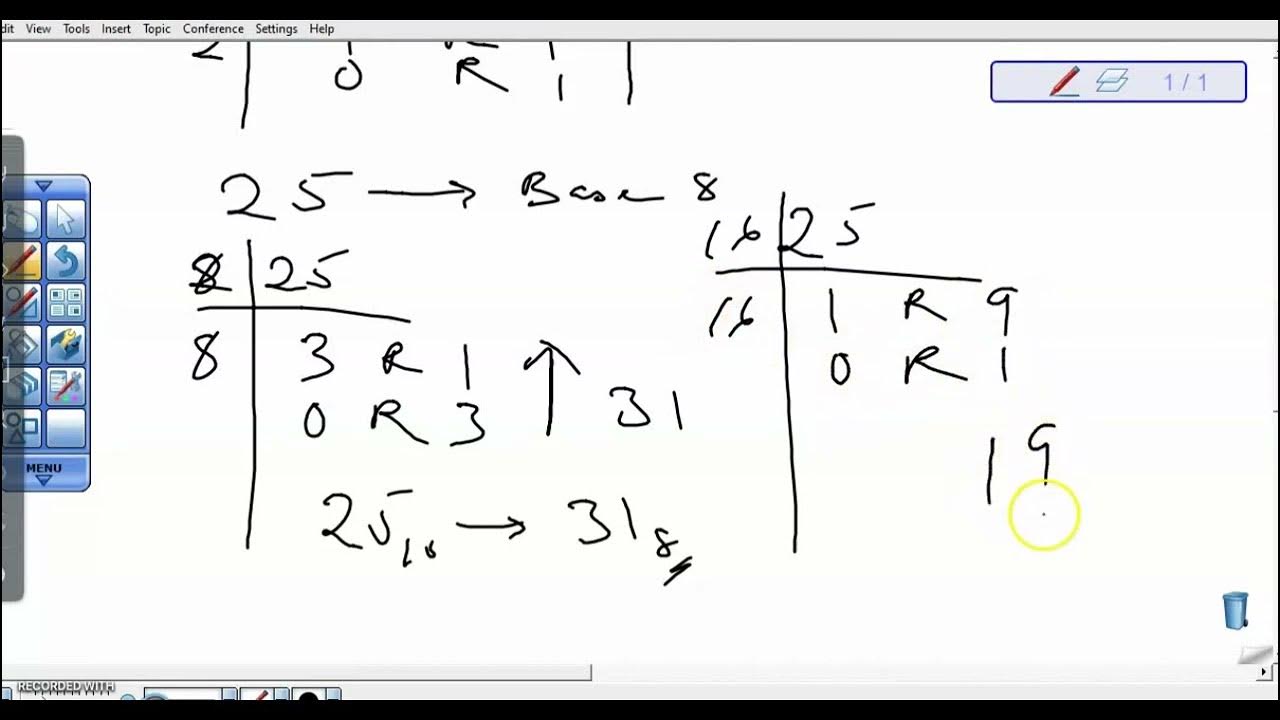 dit View Tools Insert Topic Conference Settings Help
2
0 R 1
1 / 1
25 → Base 8
8 25
8 3 R 1
0 R 3
31
25₁₀ → 31₈
16 25
16 1 R 9
0 R 1
19
MENU
RECORDED WITH